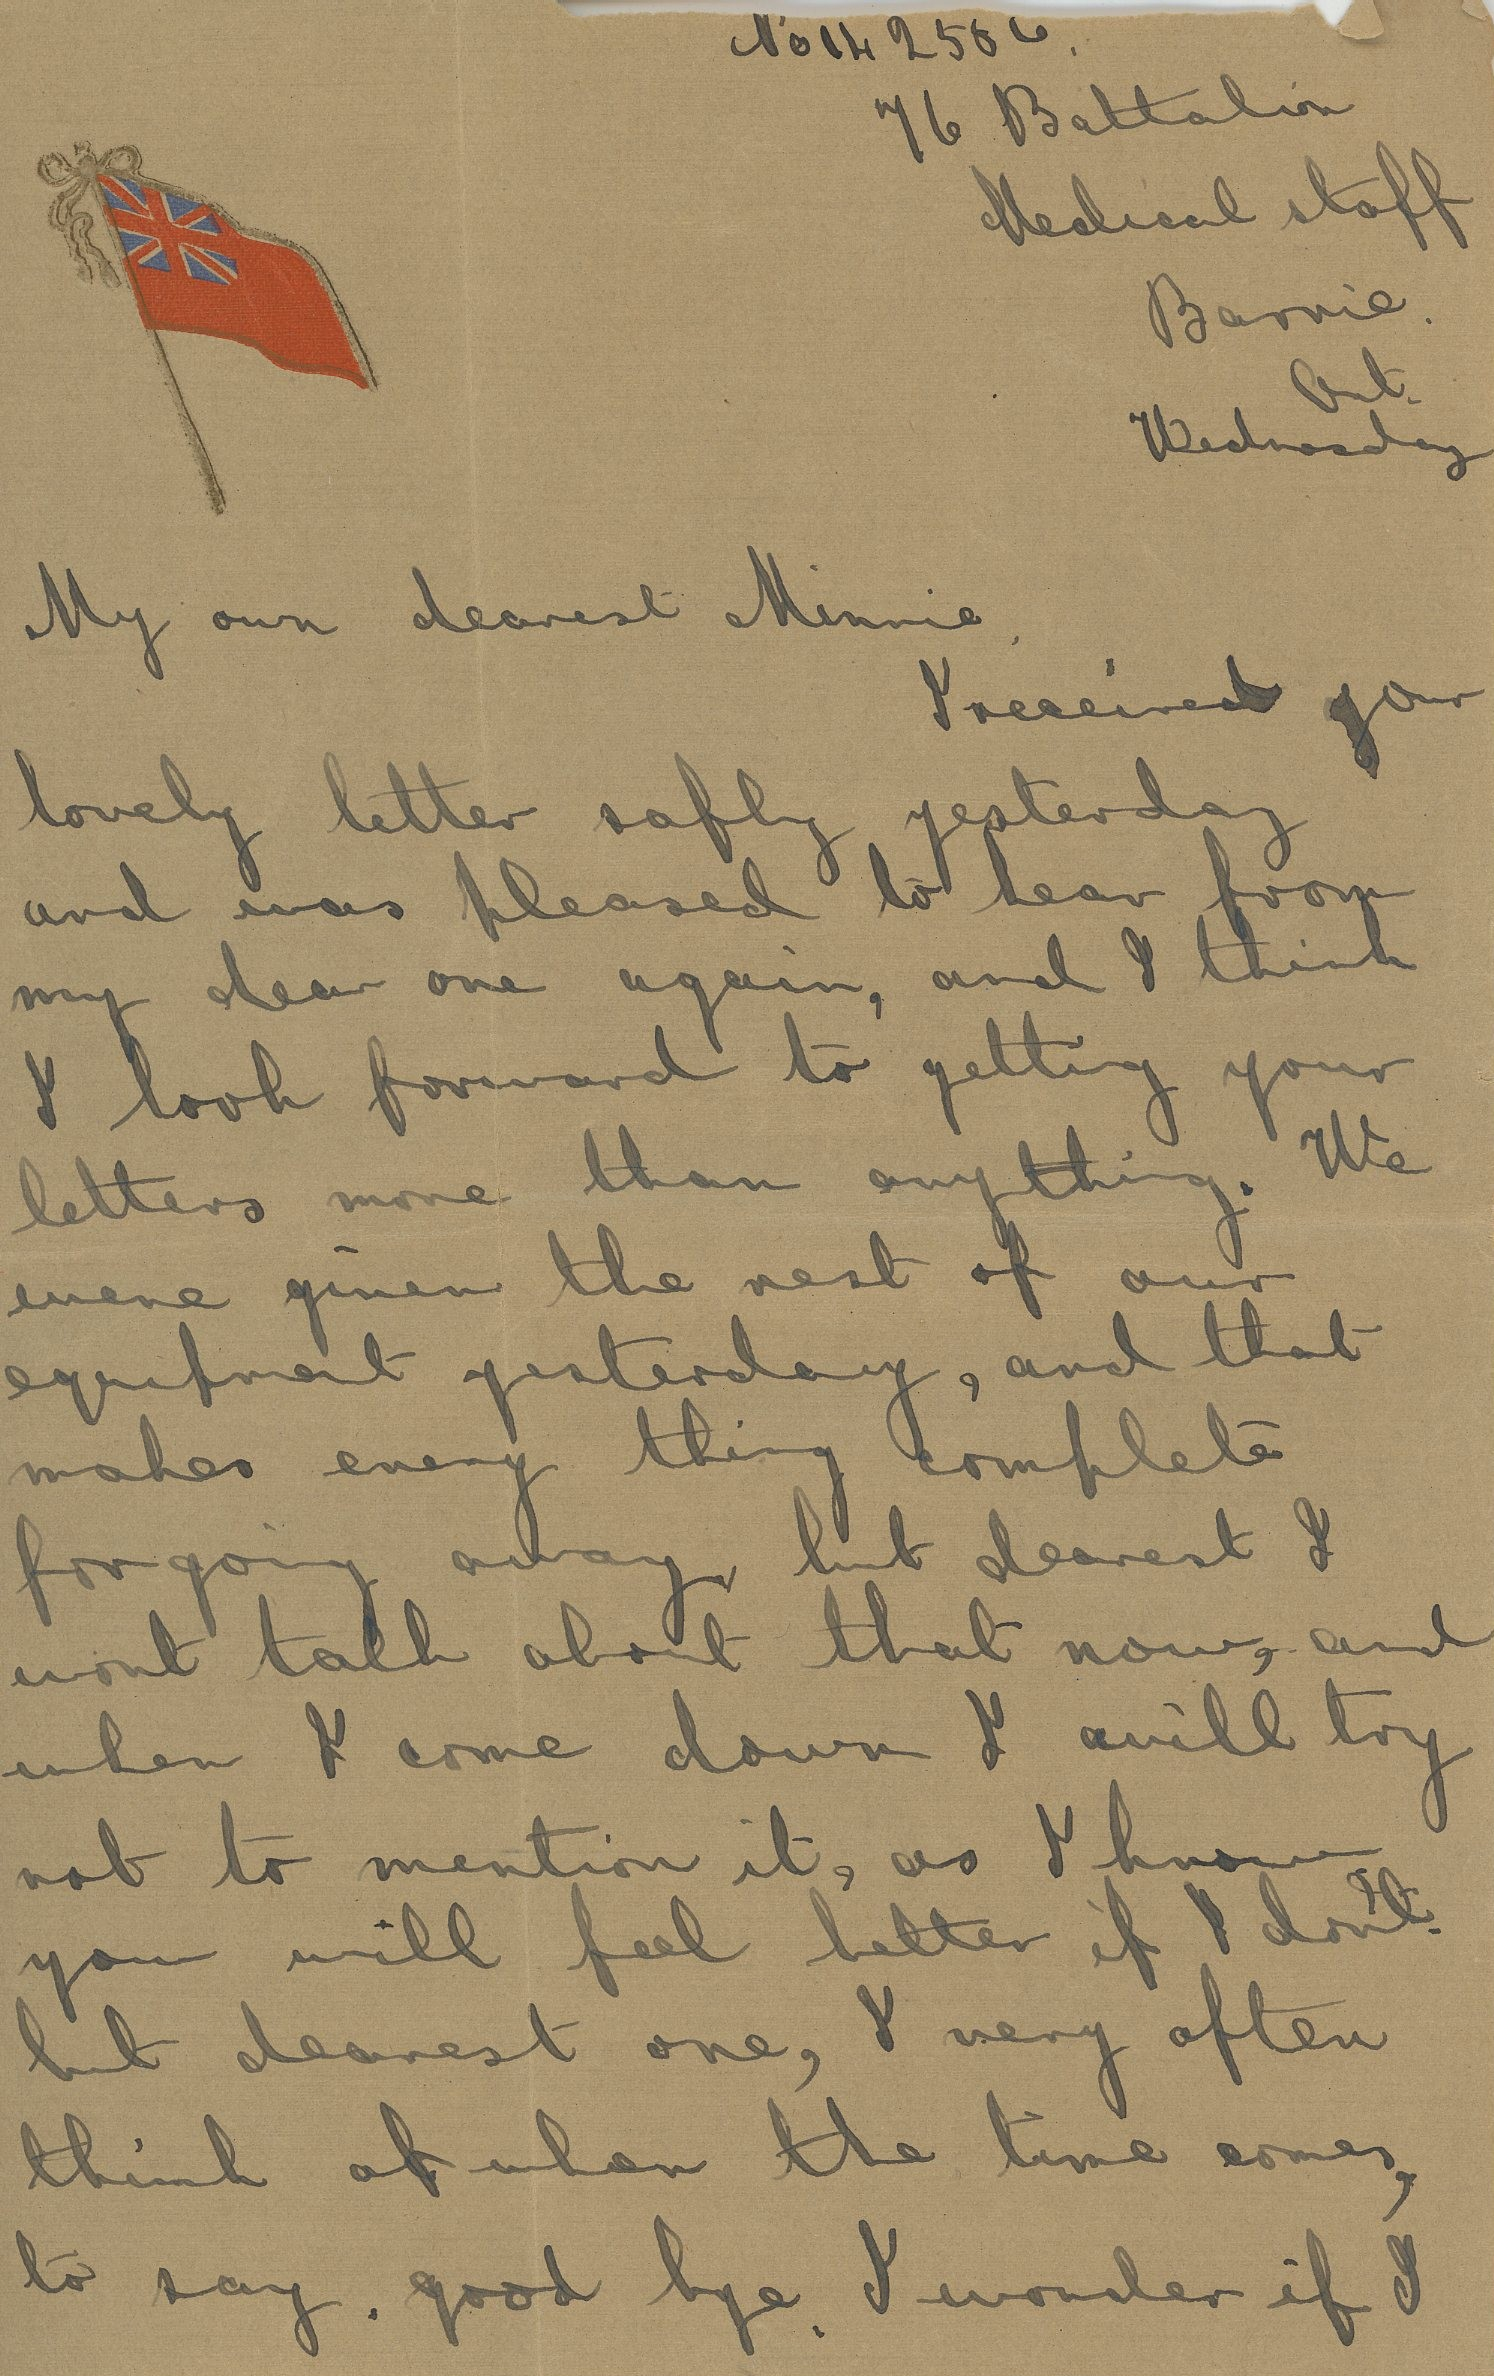 No 142506.
76 Battalion
Medical staff
Barrie.
Ont.
Wednesday
My own dearest Minnie,
I received your
lovely letter safly yesterday
and was pleased to hear from
my dear one again, and I think
I look forward to getting your
letters more than anything. We
were given the rest of our
equipment yesterday, and that
makes every thing complete
for going away, but dearest I
wont talk about that now, and
when I come down I will try
not to mention it, as I know
you will feel better if I don't.
but dearest one, I very often
think of when the time comes,
to say. good bye. I wonder if I